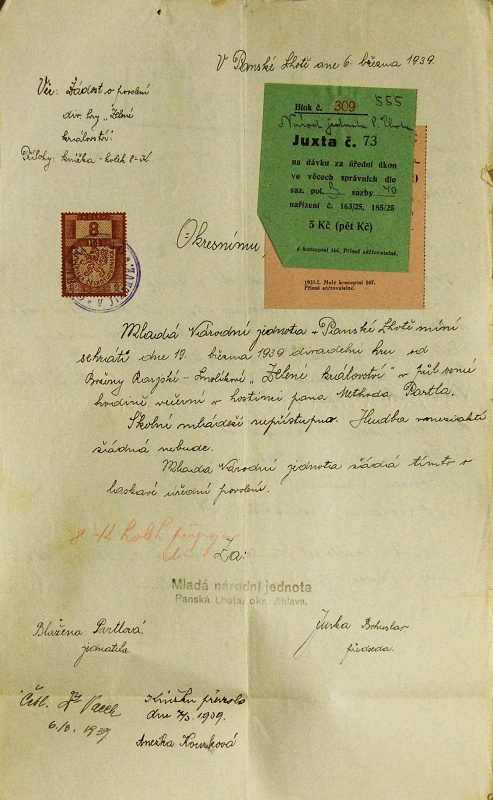 V Panské Lhotě dne 6. března 1939.
Věc: Žádost o povolení
div. hry „Zelené
království“.
Přílohy: knížka - kolek 8-K
Blok č. 309 555
Národ. jednota P. Lhota
Juxta č. 73
na dávku za úřední úkon
ve věcech správních dle
saz. pol. sazby 40
nařízení č. 163/25, 185/25
5 Kč (pět Kč)
k konceptní 166. Přísně súčtovatelné.
Malý konceptní 167.
Přísně súčtovatelné.
8
Okresnímu
Mladá Národní jednota v Panské Lhotě míní
sehráti dne 19. března 1939 divadelní hru od
Smolíkové „Zelené království“ v půl osmé
hodině večerní v hostinci pana Methoda Partla.
Školní mládeži nepřístupno. Hudba v meziaktí
žádná nebude.
Mladá Národní jednota žádá tímto o
laskavé úřední povolení.
8-K kolek
Za:
Mladá národní jednota
Panská Lhota, okr. Jihlava.
Blažena Partlová
jednatelka.
Jirka Bohuslav
předseda.
Četl.
6/3. 1939
Knížku převzala
dne 7/3. 1939.
Anežka